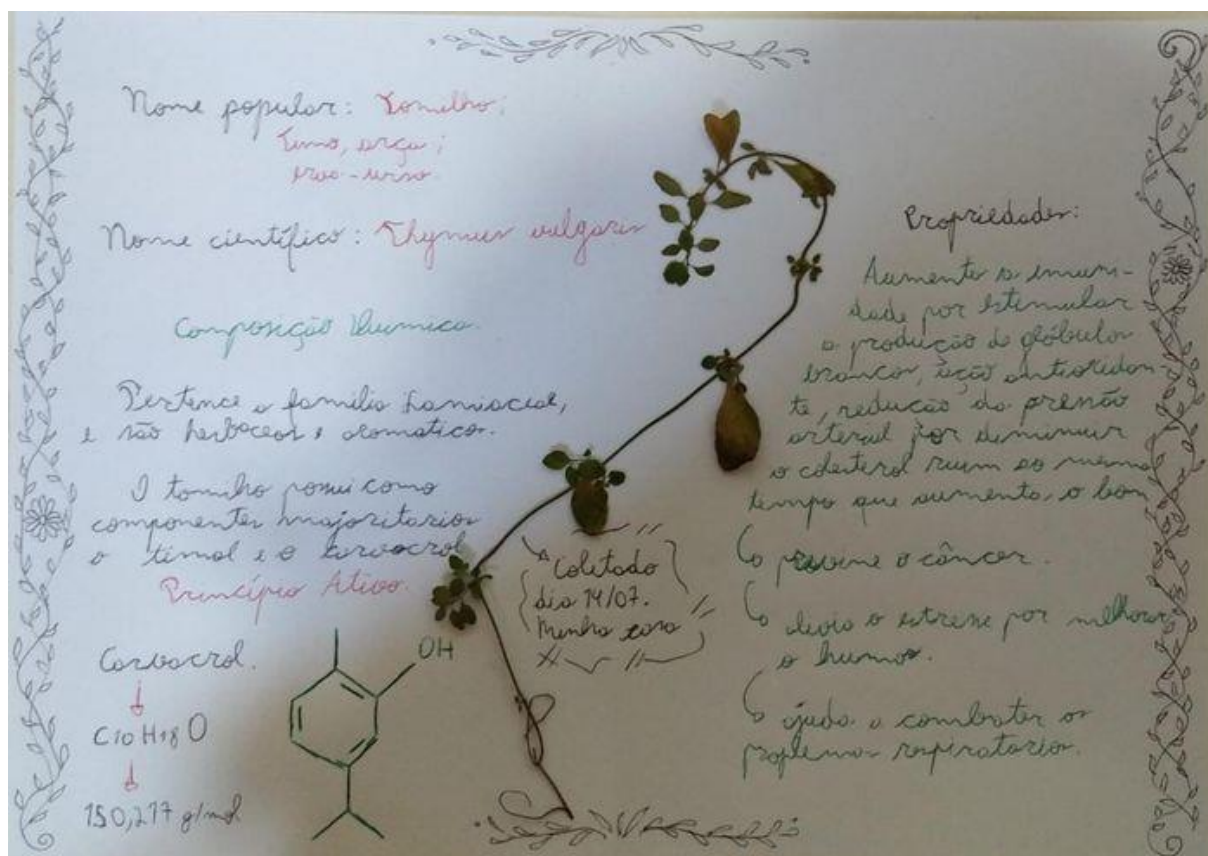 Nome popular: Tomilho;
timo, arçã;
erva-urso.
Nome científico: Thymus vulgaris
Composição Química.
Pertence a família Lamiaceal,
e são herbaceos e aromatico.
O tomilho possui como
componentes majoritarios
o timol e o carvacrol
Princípio Ativo.
Carvacrol.
C10 H18 O
150,217 g/mol
OH
Coletado
dia 14/07.
Minha casa
Propriedades:
Aumenta a imuni-
dade por estimular
a produção de glóbulos
brancos, ação antioxidan-
te, redução da pressão
arterial por diminuir
o colesterol ruim ao mesmo
tempo que aumenta o bom
previne o câncer.
alivia o estresse por melhorar
o humor.
ajuda a combater os
proplemas respiratorios.